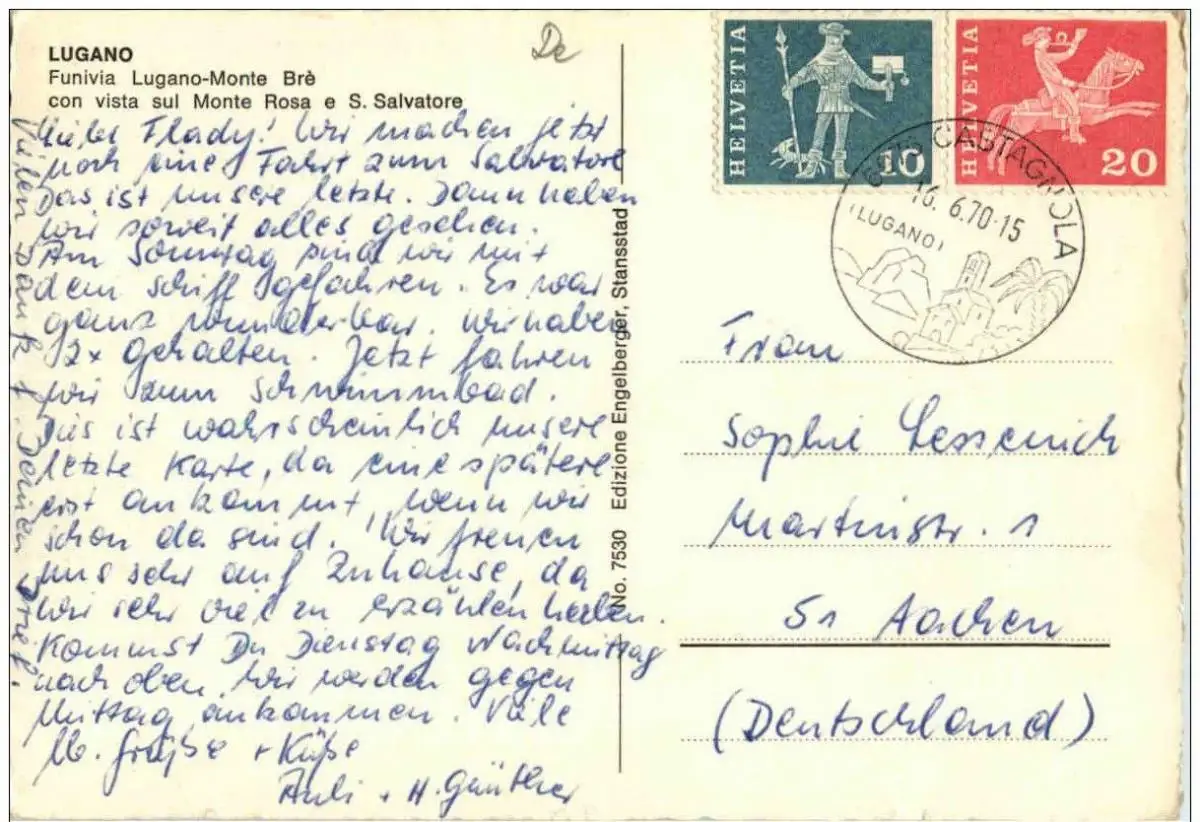 LUGANO
Funivia Lugano-Monte Brè
con vista sul Monte Rosa e S. Salvatore
De
HELVETIA
10
HELVETIA
20
CASTAGNOLA
16. 6.70-15
(LUGANO)
Wir machen jetzt
noch eine Fahrt zum Salvatore
Das ist unsere letzte. Dann haben
wir soweit alles gesehen.
Am Sonntag sind wir mit
dem Schiff gefahren. Es war
ganz wunderbar. Wir haben
2x gehalten. Jetzt fahren
wir zum Schwimmbad.
Dies ist wahrscheinlich unsere
letzte Karte, da eine spätere
erst ankommt, wenn wir
schon da sind. Wir freuen
uns sehr auf Zuhause, da
wir sehr viel zu erzählen haben.
Kommst Du Dienstag Nachmittag
nach oben, wir werden gegen
Mittag ankommen. Viele
lb. Grüße + Küße
+ H. Günther
Vielen Dank f. Deinen Brief.
No. 7530 Edizione Engelberger, Stansstad
Frau
Sophie Lessenich
Martinstr. 1
51 Aachen
(Deutschland)